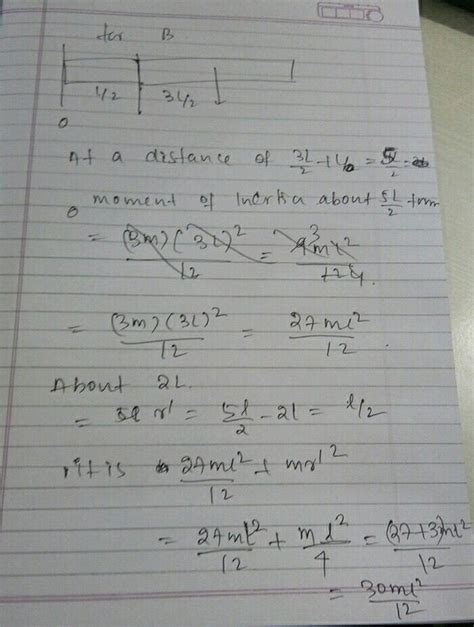 for B
1/2 3L/2
0
At a distance of 3L/2 + L/2 = 5L/2
0 moment of Inertia about 5L/2 from
= (3m)(3L)²/12 = 9³mL²/12 4.
= (3m)(3L)²/12 = 27ml²/12.
About 2L.
= r' = 5l/2 - 2l = l/2
it is 27ml²/12 + mr'²
= 27ml²/12 + ml²/4 = (27+3)ml²/12
= 30ml²/12